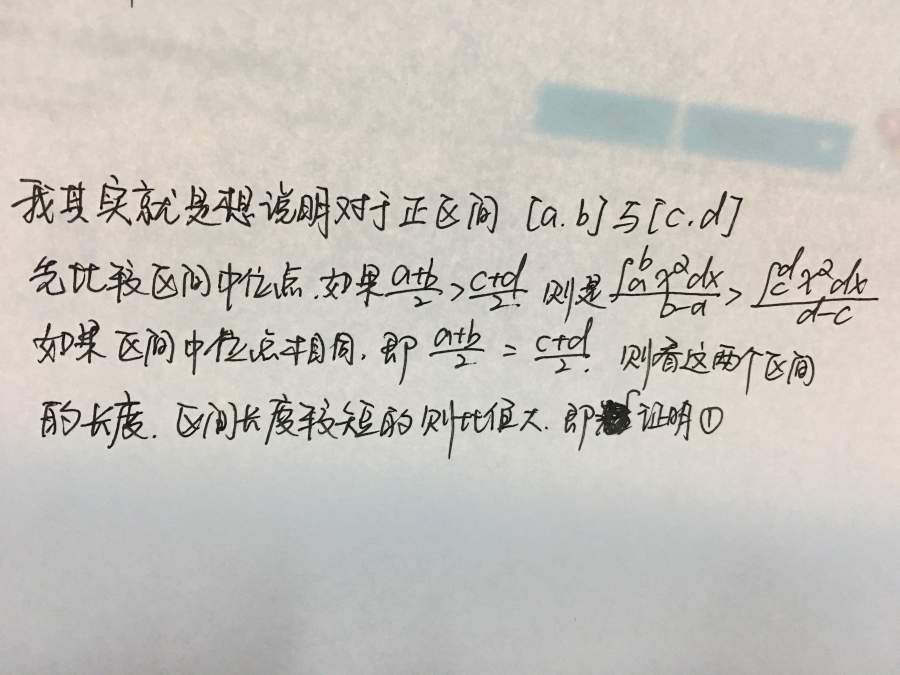 我其实就是想说明对于正区间 [a.b]与[c,d]
先比较区间中位点.如果 \frac{a+b}{2} > \frac{c+d}{2}. 则是 \frac{\int_a^b x^2 dx}{b-a} > \frac{\int_c^d x^2 dx}{d-c}
如果区间中位点相同, 即 \frac{a+b}{2} = \frac{c+d}{2}. 则看这两个区间
的长度. 区间长度较短的则比值大. 即证明①